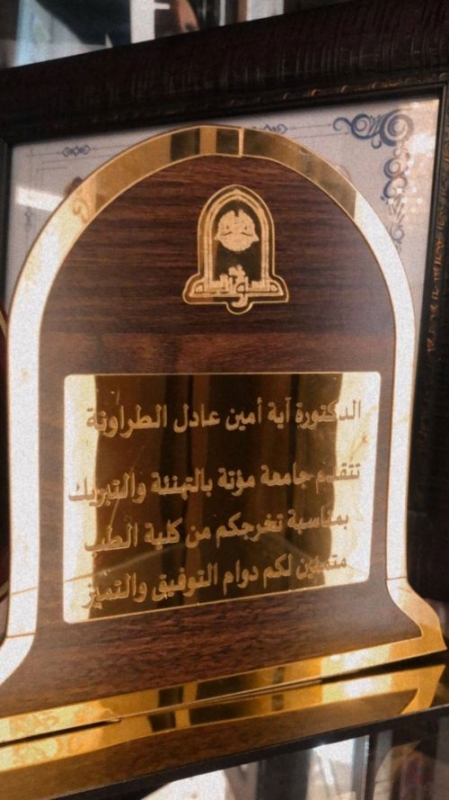 الدكتورة آية أمين عادل الطراونة
تتقدم جامعة مؤتة بالتهنئة والتبريك
بمناسبة تخرجكم من كلية الطب
متمنين لكم دوام التوفيق والتميز